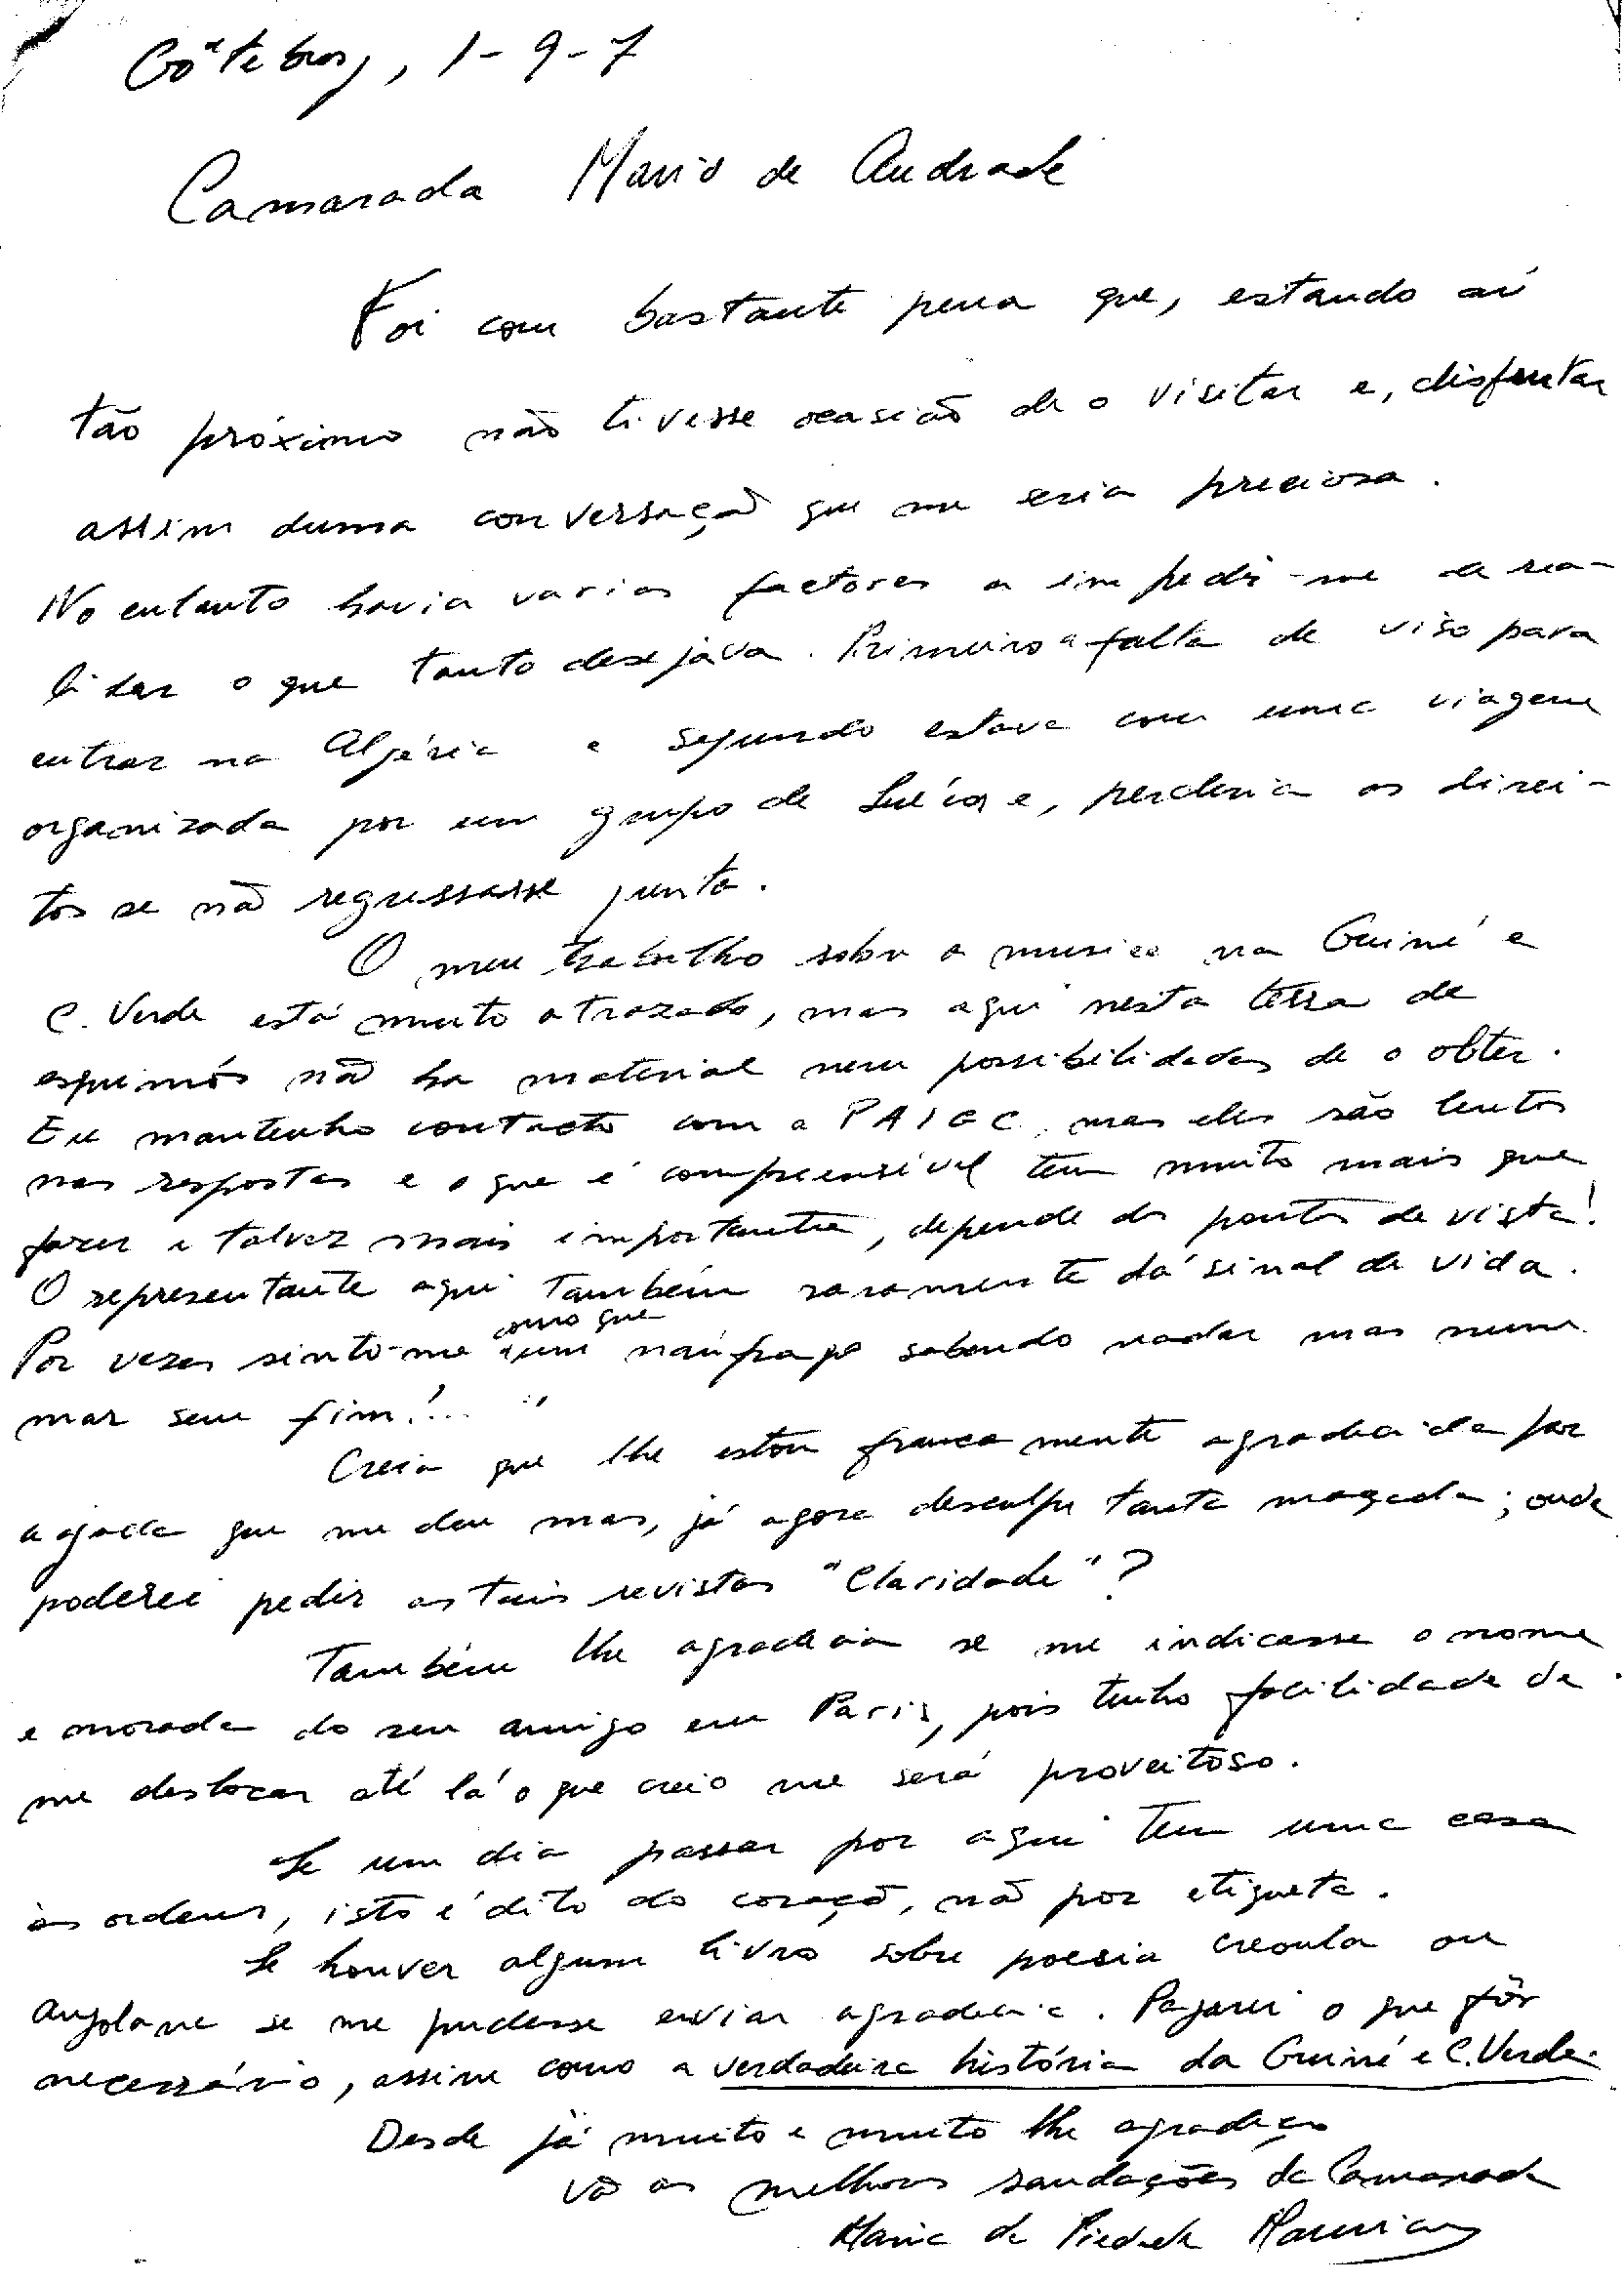 Göteborg, 1-9-7
Camarada Mario de Andrade
Foi com bastante pena que, estando aí
tão próximo não tivesse ocasião de o visitar e, disfrutar
assim duma conversação que me seria preciosa.
No entanto havia varios factores a impedir-me de rea-
lizar o que tanto desejava. Primeiro a falta de viso para
entrar na Algéria e segundo estava com uma viagem
organizada por um grupo de Suécos e, perderia os direi-
tos se não regressasse junto.
O meu trabalho sobre a musica na Guiné e
C. Verde está muito atrazado, mas aqui nesta terra de
esquimós não ha material nem possibilidades de o obter.
Eu mantenho contacto com a PAIGC, mas eles são lentos
nas respostas e o que é compreensível tem muito mais que
fazer e talvez mais importante, depende do ponto de vista!
O representante aqui também raramente dá sinal de vida.
Por vezes sinto-me como que um naúfrago sabendo nadar mas num
mar sem fim!...
Creia que lhe estou francamente agradecida por
a ajuda que me deu mas, já agora desculpe tanta maçada; onde
poderei pedir as tais revistas "Claridade"?
Também lhe agradecia se me indicasse o nome
e morada do seu amigo em Paris, pois tenho facilidade de
me deslocar até lá o que creio me será proveitoso.
Se um dia passar por aqui tem uma casa
às ordens, isto é dito do coração, não por etiqueta.
Se houver algum livro sobre poesia creoula ou
angolana se me pudesse enviar agradecia. Pagarei o que fôr
necessário, assim como a verdadeira história da Guiné e C. Verde.
Desde já muito e muito lhe agradeço
Vão as melhores saudações da Camarada
Maria da Piedade